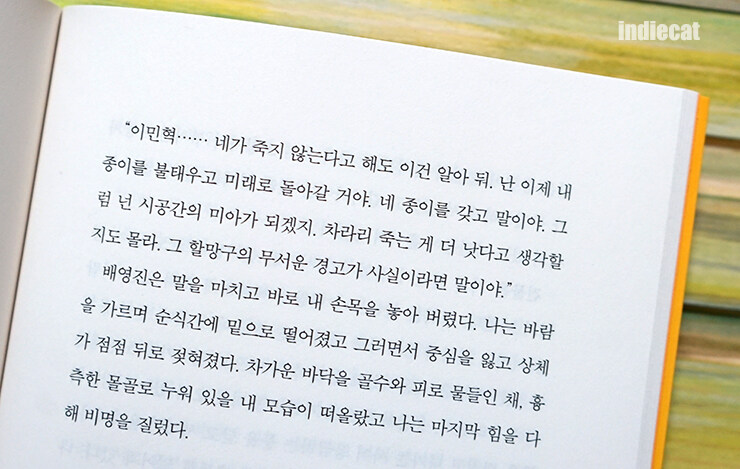 indiecat
“이민혁…… 네가 죽지 않는다고 해도 이건 알아 둬. 난 이제 내
종이를 불태우고 미래로 돌아갈 거야. 네 종이를 갖고 말이야. 그
럼 넌 시공간의 미아가 되겠지. 차라리 죽는 게 더 낫다고 생각할
지도 몰라. 그 할망구의 무서운 경고가 사실이라면 말이야.”
배영진은 말을 마치고 바로 내 손목을 놓아 버렸다. 나는 바람
을 가르며 순식간에 밑으로 떨어졌고 그러면서 중심을 잃고 상체
가 점점 뒤로 젖혀졌다. 차가운 바닥을 골수와 피로 물들인 채, 흉
측한 몰골로 누워 있을 내 모습이 떠올랐고 나는 마지막 힘을 다
해 비명을 질렀다.